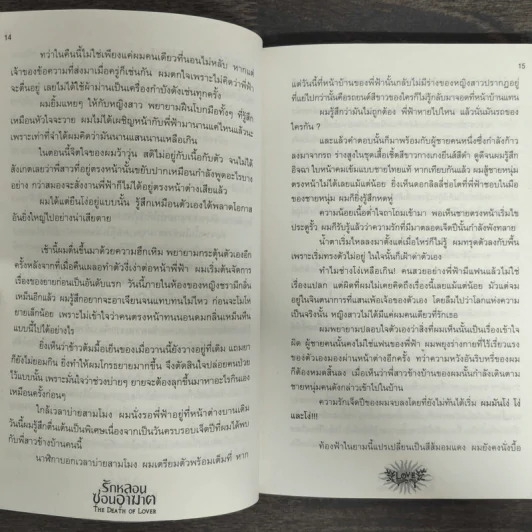 14
ทว่าในคืนนี้ไม่ใช่เพียงแค่ผมคนเดียวที่นอนไม่หลับ หากแต่
เจ้าของข้อความที่ส่งมาเมื่อครู่ก็เช่นกัน ผมตกใจเพราะไม่คิดว่าพี่ฟ้า
จะตื่นอยู่ เลยไม่ได้ใช้ผ้าม่านเป็นเครื่องกำบังดังเช่นทุกครั้ง
ผมยิ้มแหยๆ ให้กับหญิงสาว พยายามฝืนโบกมือทั้งๆ ที่รู้สึก
เหมือนหัวใจจะวาย ผมไม่ได้เผชิญหน้ากับพี่ฟ้ามานานแค่ไหนแล้วนะ
เพราะเท่าที่จำได้ผมคิดว่ามันนานแสนนานเหลือเกิน
ในตอนนี้จิตใจของผมว้าวุ่น สติไม่อยู่กับเนื้อกับตัว จนไม่ได้
สังเกตเลยว่าพี่สาวที่อยู่ตรงหน้านั้นขยับปากเหมือนกำลังพูดอะไรบาง
อย่าง กว่าสมองจะสั่งงานพี่ฟ้าก็ไม่ได้อยู่ตรงหน้าต่างเสียแล้ว
ผมได้แต่ยืนโง่อยู่แบบนั้น รู้สึกเหมือนตัวเองได้พลาดโอกาส
อันยิ่งใหญ่ไปอย่างน่าเสียดาย
เช้านี้ผมตื่นขึ้นมาด้วยความฮึกเหิม พยายามกระตุ้นตัวเองอีก
ครั้งหลังจากที่เมื่อคืนเผลอทำตัวงี่เง่าต่อหน้าพี่ฟ้า ผมเริ่มต้นจัดการ
เรื่องของยายก่อนเป็นอันดับแรก วันนี้ภายในห้องของหญิงชรามีกลิ่น
เหม็นอีกแล้ว ผมรู้สึกอยากจะอาเจียนจนแทบทนไม่ไหว ก่อนจะไม่ให้
ยายเล็กน้อย เพราะไม่เข้าใจว่าคนตรงหน้าทนนอนดมกลิ่นเหม็นหืน
แบบนี้ไปได้อย่างไร
ยิ่งเห็นว่าข้าวต้มมื้อเย็นของเมื่อวานนี้ยังวางอยู่ที่เดิม แถมยา
ก็ยังไม่ยอมกิน ยิ่งทำให้ผมโกรธยายมากขึ้น จึงตัดสินใจปล่อยคนป่วย
ไว้แบบนั้น เพราะมั่นใจว่าช่วงบ่ายๆ ยายจะต้องลุกขึ้นมาหาอะไรกินเอง
เหมือนครั้งก่อนๆ
ใกล้เวลาบ่ายสามโมง ผมนั่งรอพี่ฟ้าอยู่ที่หน้าต่างบานเดิม
วันนี้ผมรู้สึกตื่นเต้นเป็นพิเศษเนื่องจากเป็นวันครบรอบเจ็ดปีที่ผมได้พบ
กับพี่สาวข้างบ้านคนนี้
นาฬิกาบอกเวลาบ่ายสามโมง ผมเตรียมตัวพร้อมเต็มที่ หาก
รักหลอน
ซ่อนอาฆาต
THE DEATH OF LOVER
15
แต่วันนี้ที่หน้าบ้านของพี่ฟ้านั้นกลับไม่มีร่างของหญิงสาวปรากฏอยู่
ที่แย่ไปกว่านั้นคือรถยนต์สีขาวของใครก็ไม่รู้กลับมาจอดที่หน้าบ้านแทน
ผมรู้สึกว่ามันไม่ถูกต้อง พี่ฟ้าหายไปไหน แล้วนั่นมันรถของ
ใครกัน ?
และแล้วคำตอบนั้นก็มาพร้อมกับผู้ชายคนหนึ่งซึ่งกำลังก้าว
ลงมาจากรถ ร่างสูงในชุดเสื้อเชิ้ตสีขาวกางเกงยีนส์สีดำ ดูดีจนผมรู้สึก
อิจฉา ใบหน้าคมเข้มแบบชายไทยแท้ หากเทียบกันแล้ว ผมสู้ชายหนุ่ม
ตรงหน้าไม่ได้เลยแม้แต่น้อย ยิ่งเห็นดอกลิลลี่ช่อโตที่พี่ฟ้าชอบในมือ
ของชายหนุ่ม ผมก็ยิ่งรู้สึกหดหู่
ความน้อยเนื้อต่ำใจถาโถมเข้ามา พอเห็นชายตรงหน้าเริ่มไข
ประตูรั้ว ผมก็เริ่มรู้แล้วว่าความรักที่มีมาตลอดเจ็ดปีกำลังพังทลาย
น้ำตาเริ่มไหลลงมาตั้งแต่เมื่อไหร่ก็ไม่รู้ ผมทรุดตัวลงกับพื้น
เพราะเริ่มทรงตัวไม่อยู่ ในใจนั้นก็เฝ้าด่าตัวเอง
ทำไมช่างโง่เหลือเกิน! คนสวยอย่างพี่ฟ้ามีแฟนแล้วไม่ใช่
เรื่องแปลก แต่ผิดที่ผมไม่เคยคิดถึงเรื่องนี้เลยแม้แต่น้อย มัวแต่จม
อยู่ในจินตนาการที่แสนเพ้อเจ้อของตัวเอง โดยลืมไปว่าโลกแห่งความ
เป็นจริงนั้น หญิงสาวไม่ได้มีแค่ผมคนเดียวที่รักเธอ
ผมพยายามปลอบใจตัวเองว่าสิ่งที่ผมเห็นนั้นเป็นเรื่องเข้าใจ
ผิด ผู้ชายคนนั้นคงไม่ใช่แฟนของพี่ฟ้า ผมพยุงร่างกายที่ไร้เรี่ยวแรง
ของตัวเองมองผ่านหน้าต่างอีกครั้ง ทว่าความหวังอันริบหรี่ของผม
ก็ต้องหมดสิ้นลง เมื่อเห็นว่าพี่สาวข้างบ้านของผมนั้นกำลังเดินตาม
ชายหนุ่มคนดังกล่าวเข้าไปในบ้าน
ความรักเจ็ดปีของผมจบลงโดยที่ยังไม่ทันได้เริ่ม ผมมันโง่ โง่
และโง่!!!
ท้องฟ้าในยามนี้แปรเปลี่ยนเป็นสีส้มอมแดง ผมยังคงนั่งบื้อ